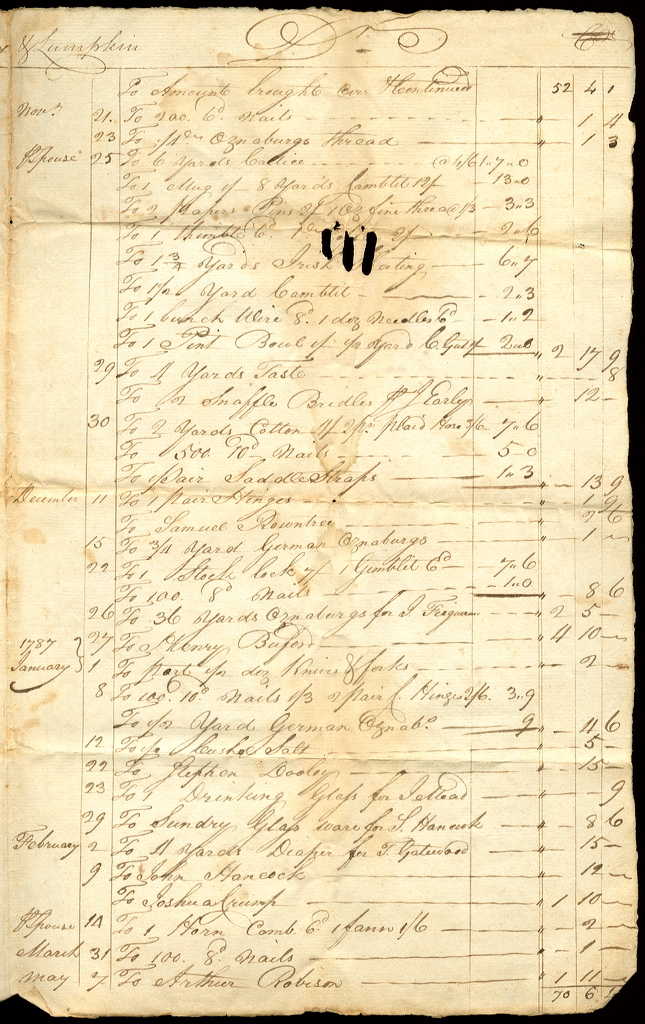 & Lumpkin Dr
To Amount brought over & Continued 52 4 1
Novr 21 To 200. 6d Nails " 1 4
23 To Oznaburgs thread " 1 3
Pr Spouse 25 To 6 Yards Callico @ 4/6 1"7"0
To 1 Mug 8 Yards Camblet 13"0
To 2 papers Pins 1 Oz fine thread 3"3
To 1 thimble 2"6
To 1 3/4 Yards Irish 6"7
To 1/2 Yard Camblet 2"3
To 1 bunch Wire 8d. 1 doz Needles 6d 1"2
To 1 Pint Bowl 1/2 Yard 2"0 " 2 17 9
29 To 4 Yards Taste " 8
To 2 Snaffle Bridles Pr J Early 12 -
30 To 2 Yards Cotton 2 pr plaid Hose 3/6 7"6
To 500 10d Nails 5"0
To 1 pair Saddle Straps 1"3 " 13 9
December 11 To 1 pair Hinges " 1 9
To Samuel Rowntree " 2 6
15 To 3/4 Yard German Oznaburgs " 1 -
22 To 1 Stock lock 1 Gimblet 7"6
To 100. 8d Nails 1"0 " 8 6
26 To 36 Yards Oznaburgs for J. " 2 5 -
27 To Henry Buford " 4 10 -
1787 January 1 To part 1/2 doz Knives & forks " 2 -
8 To 100. 10d Nails 1/3 2 pair Hinges 2/6. 3"9
To 1/2 Yard German Oznabs 9 " 4 6
12 To 1/2 bushel Salt " 5 -
22 To Stephen Dooley " 15 -
23 To 1 Drinking Glass for J Mead 9
29 To Sundry Glass ware for S. Hancock " 8 6
February 2 To 4 Yards Diaper for J. Gatewood " 15 -
9 To John Hancock " 12 -
To Joshua Crump " 1 10 -
Pr Spouse 14 To 1 Horn Comb 6d 1 fann 1/6 " 2 -
March 31 To 100. 8d Nails " 1 -
May 7 To Arthur Robison " 1 11 -
70 6